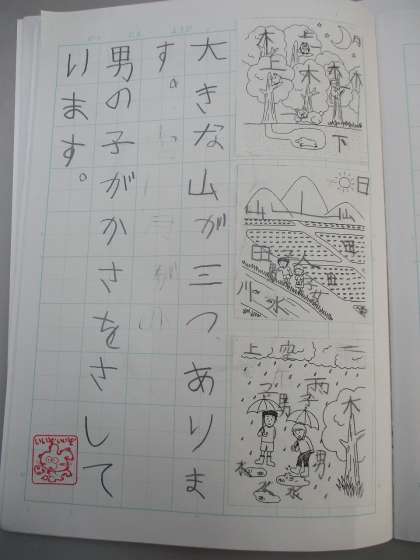 大きな山が三つ、ありま
す。
男の子がかさをさして
います。
月
上
木
上
木
木
下
日
山
山
山
田
田
子
人
田
子
女
川
水
上
空
雨
子
男
子
木
男
水
水